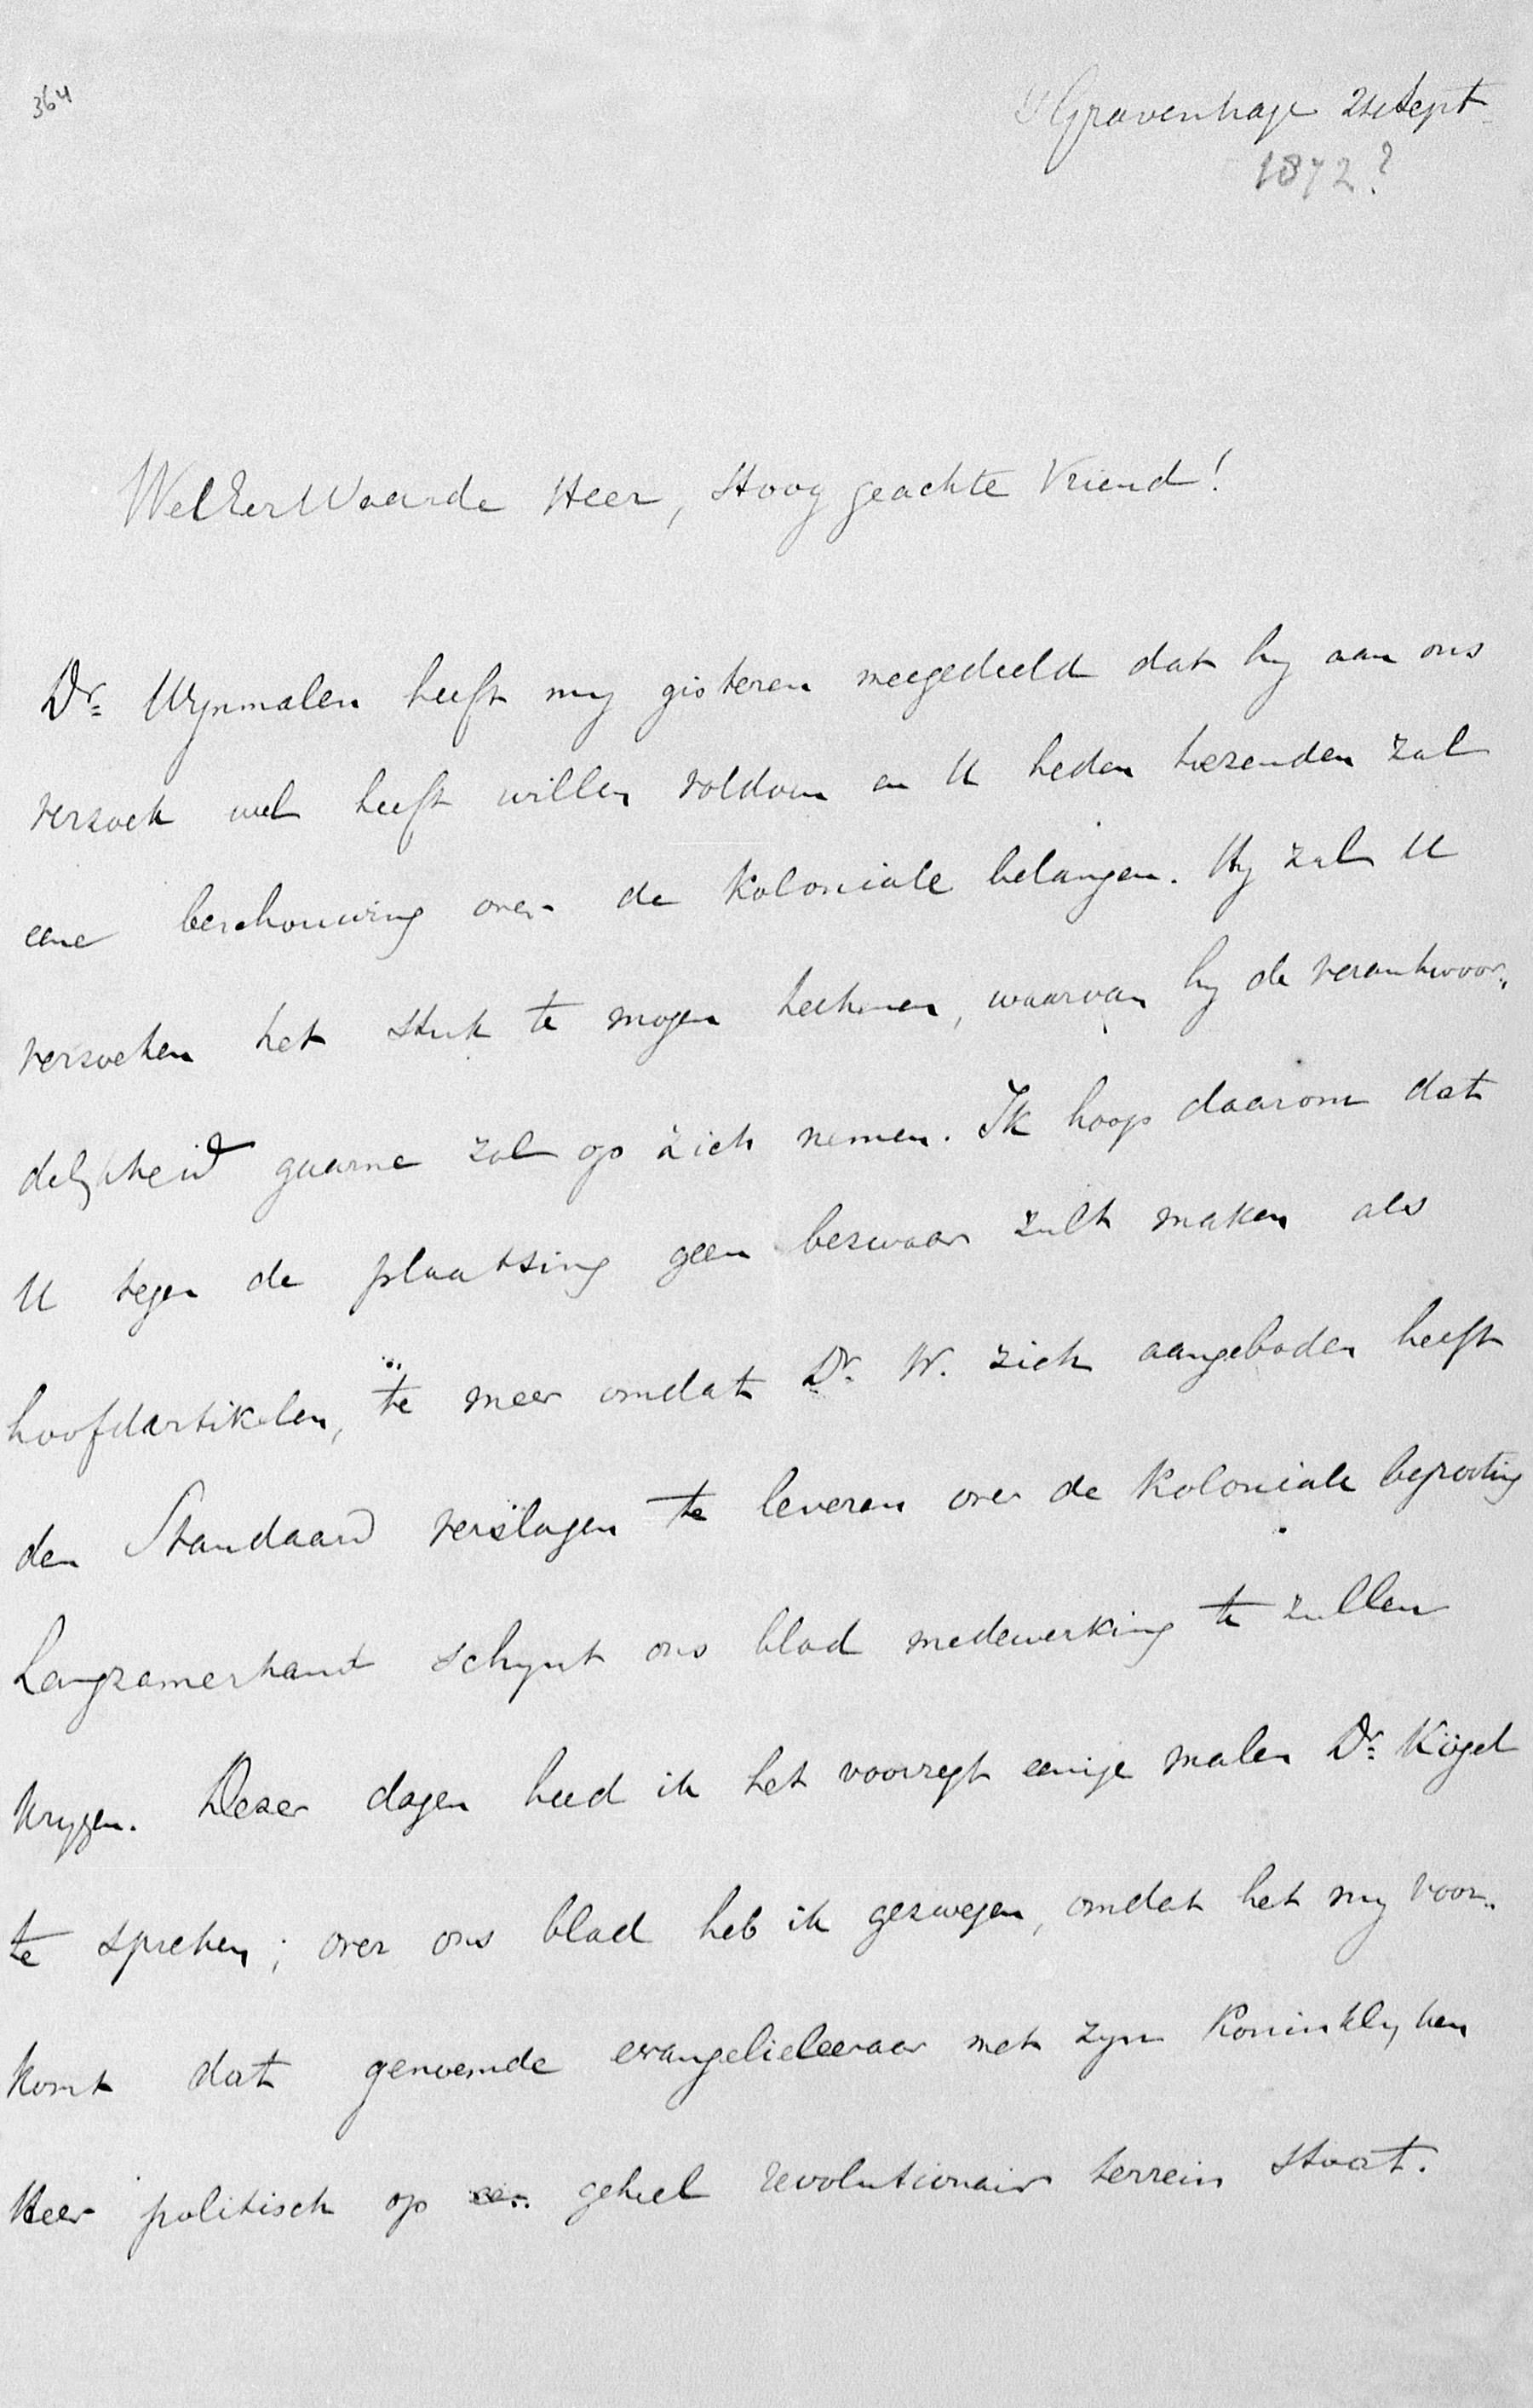 364
's Gravenhage 24 Sept
1872?
WelEerWaarde Heer, Hooggeachte Vriend!
Dr. Wynmalen heeft my gisteren meegedeeld dat hy aan ons
verzoek wel heeft willen voldoen en U heden toezenden zal
eene beschouwing over de Koloniale belangen. Hy zal U
verzoeken het stuk te mogen teekenen, waarvan hy de verantwoor-
delykheid gaarne zal op zich nemen. Ik hoop daarom dat
U tegen de plaatsing geen bezwaar zult maken als
hoofdartikelen, te meer omdat Dr. W. zich aangeboden heeft
den Standaard verslagen te leveren over de Koloniale begrooting
Langzamerhand schynt ons blad medewerking te zullen
krygen. Dezer dagen had ik het voorregt eenige malen Dr. Kögel
te spreken; over ons blad heb ik gezwegen, omdat het my voor-
komt dat genoemde evangelieleeraar met zyn Koninklyken
Heer politisch op geheel revolutionair terrein staat.